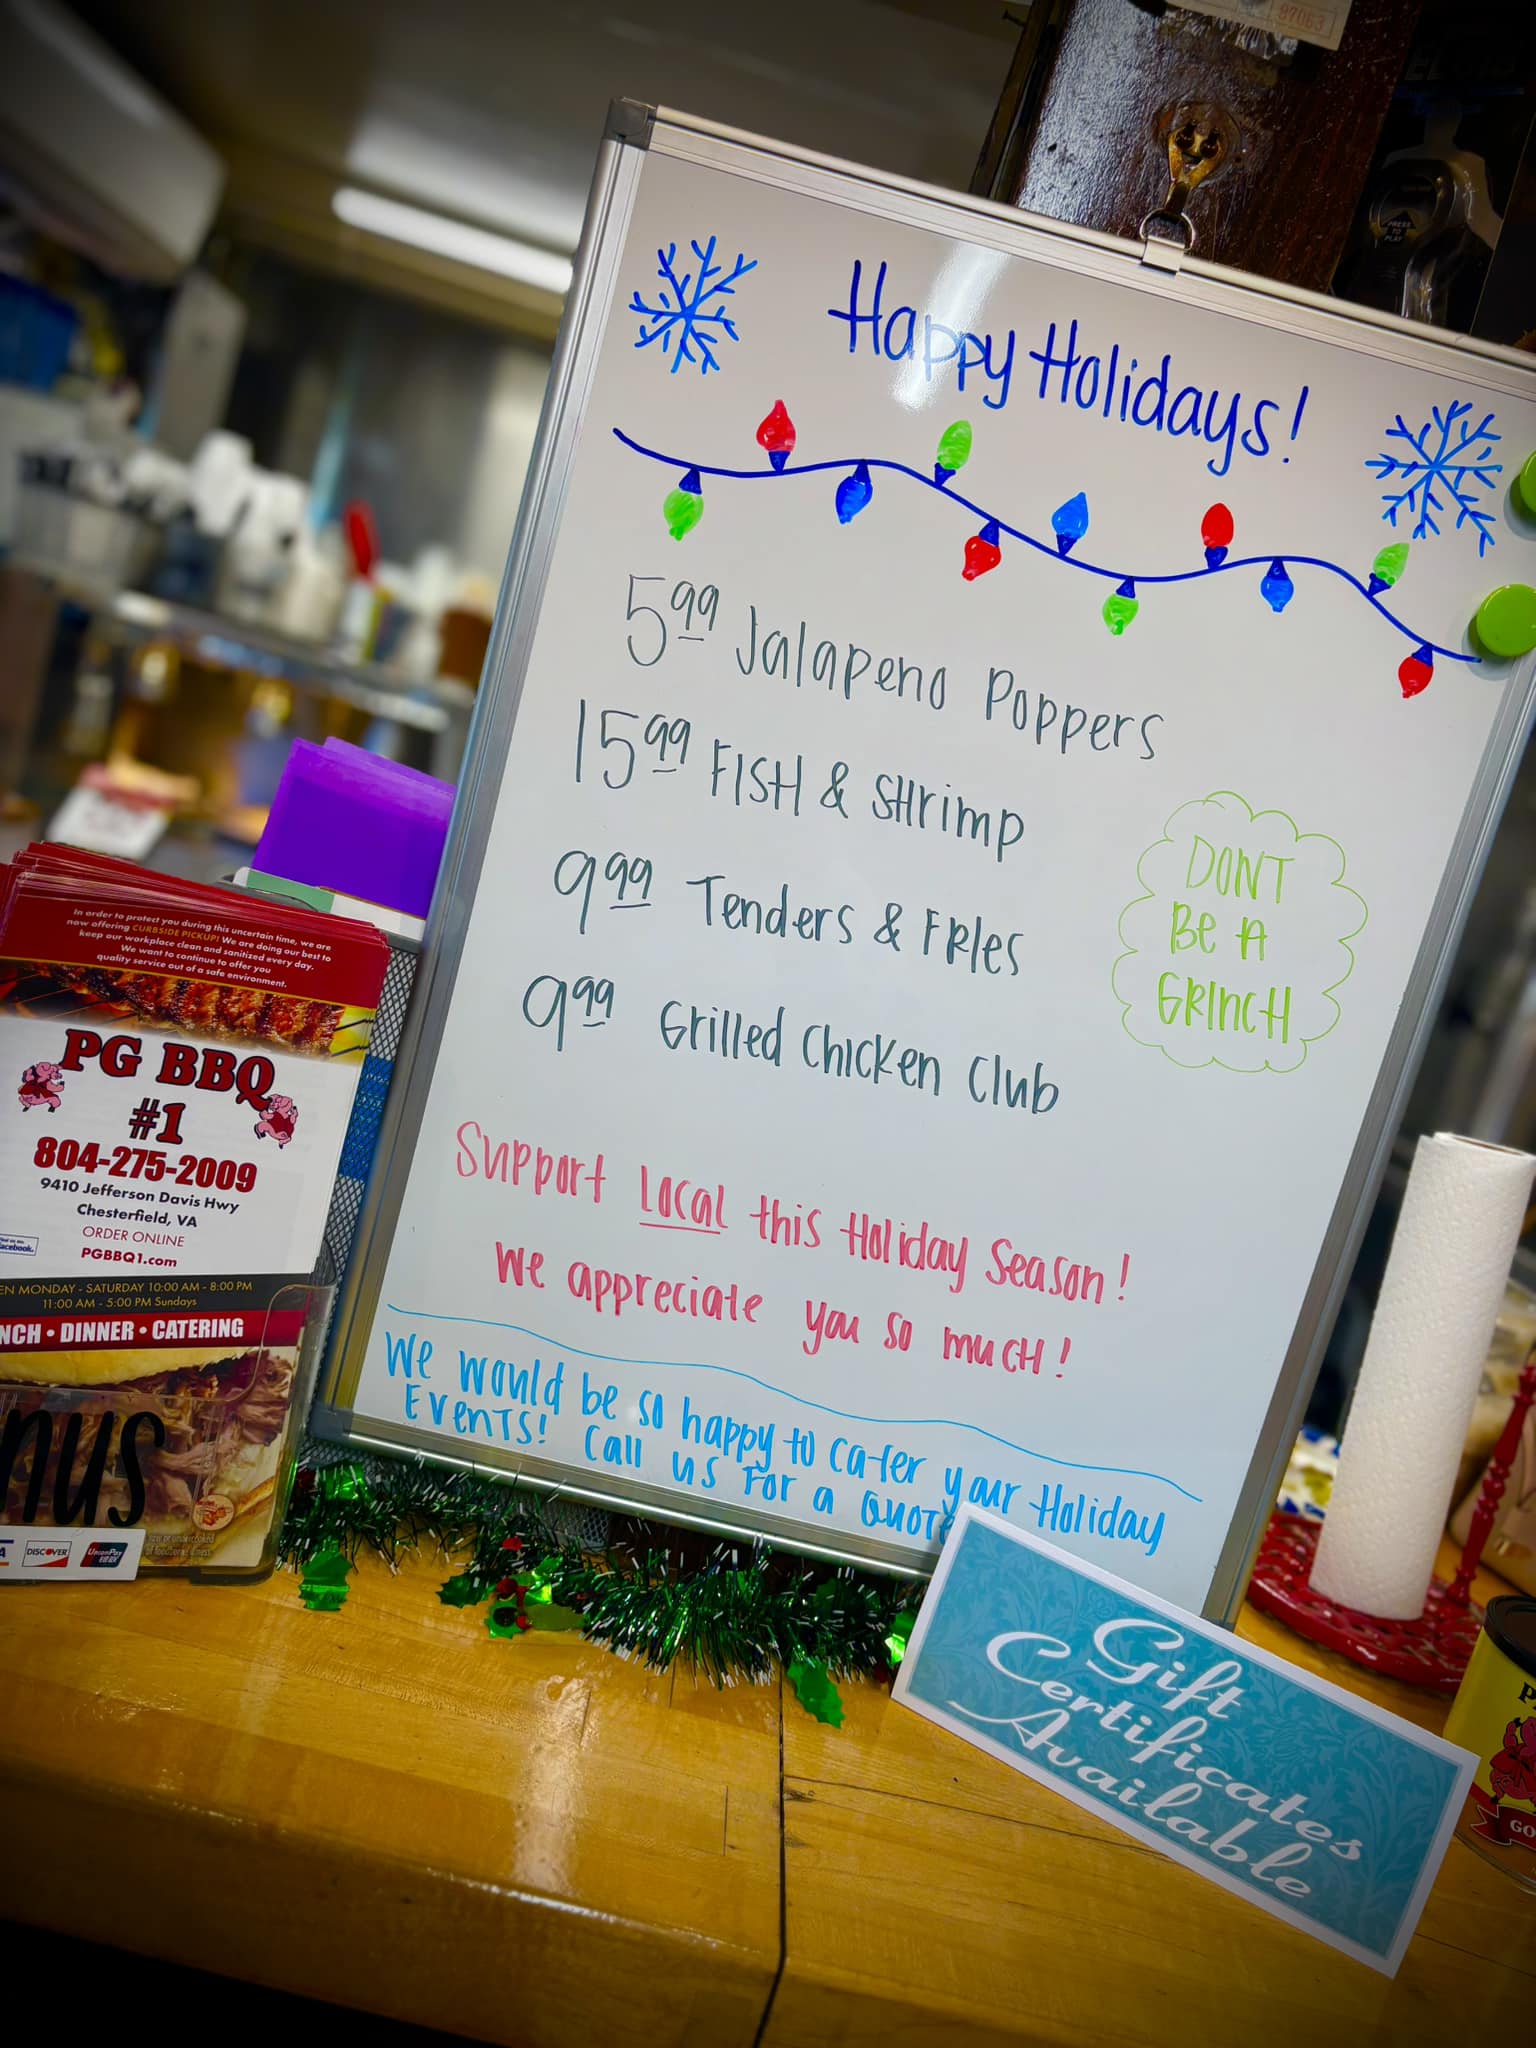 97063
PRESS
TO
PLAY
Happy Holidays!
5.99 Jalapeno Poppers
15.99 FISH & SHrimp
9.99 Tenders & FRIes
9.99 Grilled Chicken Club
DONT
Be A
GRINCH
Support Local this Holiday Season!
We appreciate you so much!
We would be so happy to cater your Holiday
Events! Call us for a Quote
In order to protect you during this uncertain time, we are
now offering CURBSIDE PICKUP! We are doing our best to
keep our workplace clean and sanitized every day.
We want to continue to offer you
quality service out of a safe environment.
PG BBQ
#1
804-275-2009
9410 Jefferson Davis Hwy
Chesterfield, VA
ORDER ONLINE
PGBBQ1.com
facebook.
EN MONDAY - SATURDAY 10:00 AM - 8:00 PM
11:00 AM - 5:00 PM Sundays
NCH • DINNER • CATERING
nus
DISCOVER
UnionPay
Gift
Certificates
Available
GO